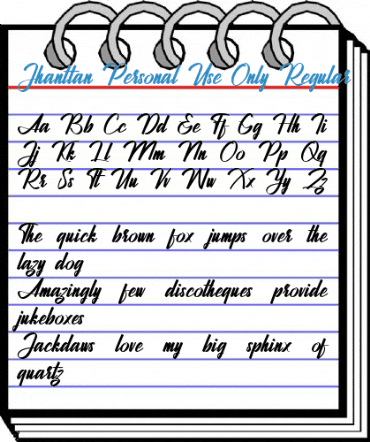 Jhanttan Personal Use Only Regular
Aa Bb Cc Dd Ee Ff Gg Hh Ii
Jj Kk Ll Mm Nn Oo Pp Qq
Rr Ss Tt Uu Vv Ww Xx Yy Zz
The quick brown fox jumps over the
lazy dog
Amazingly few discotheques provide
jukeboxes
Jackdaws love my big sphinx of
quartz